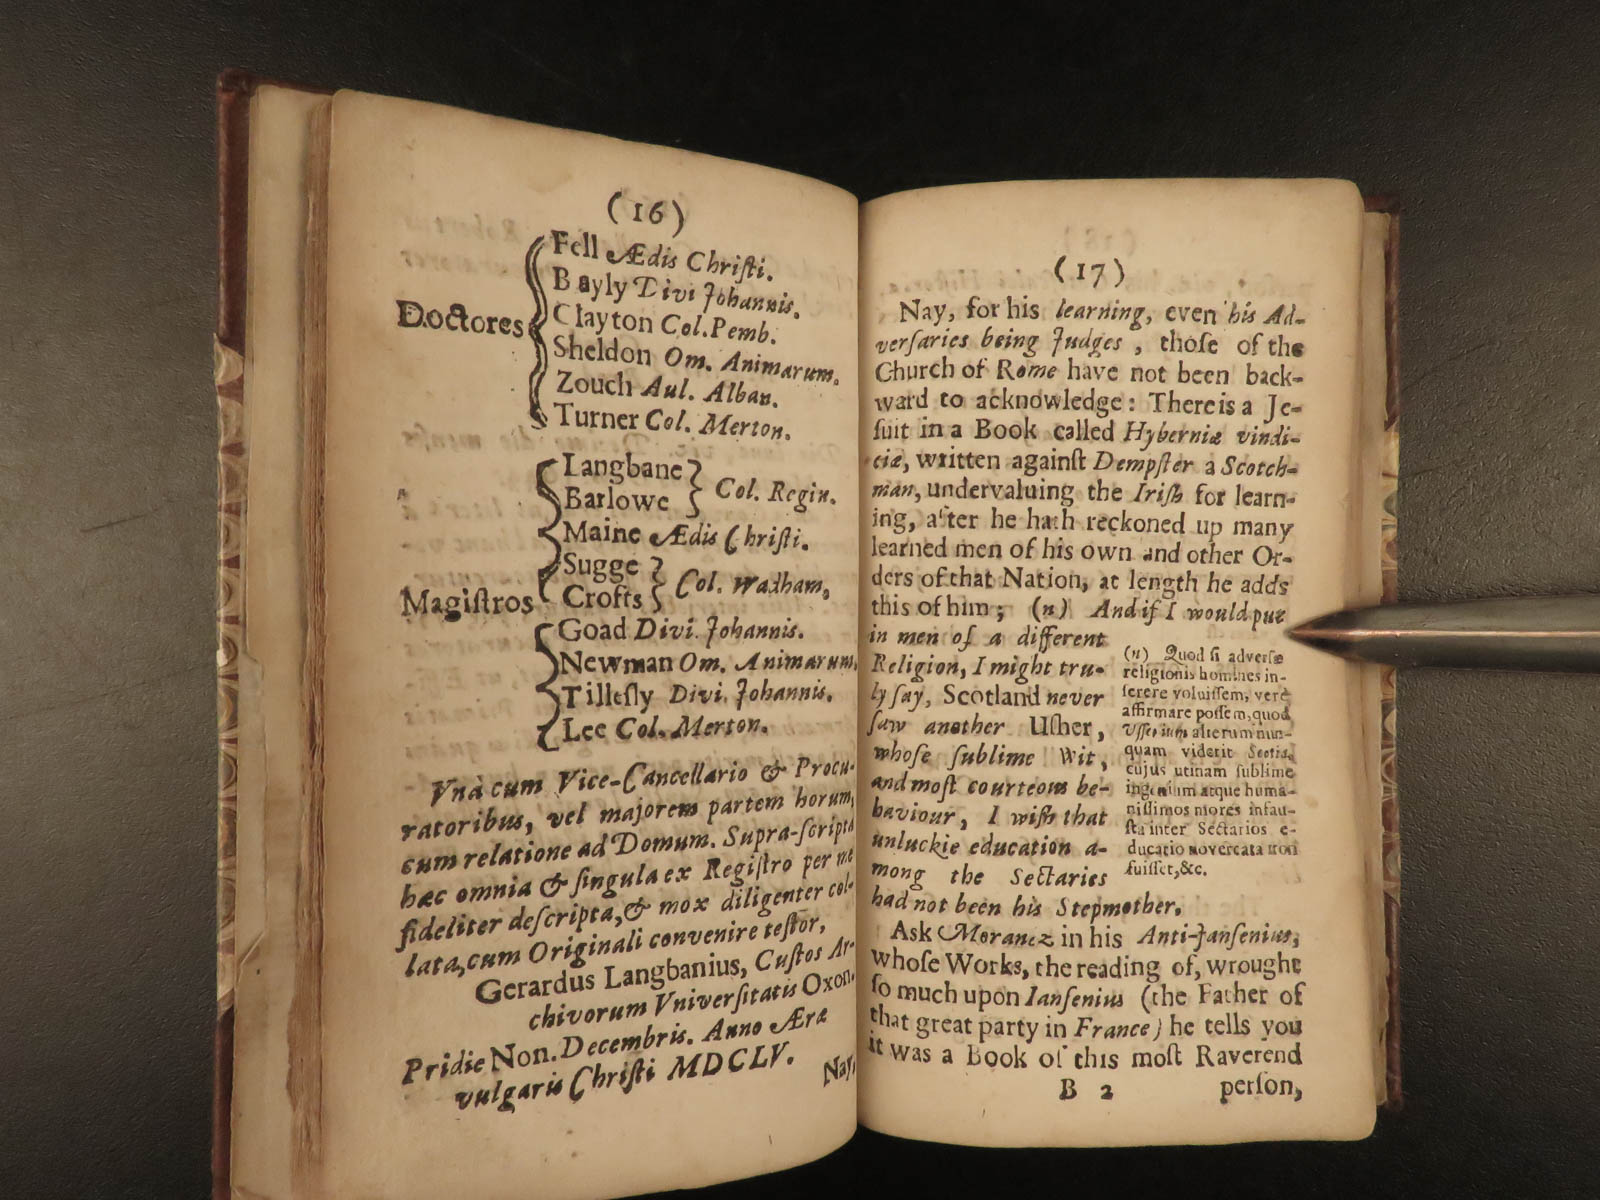 (16)
Doctores
Fell Ædis Chriſti.
Bayly Divi Johannis.
Clayton Col. Pemb.
Sheldon Om. Animarum.
Zouch Aul. Alban.
Turner Col. Merton.
Magiſtros
Langbane
Barlowe
Col. Regin.
Maine Ædis Chriſti.
Sugge
Crofts
Col. Wadham,
Goad Divi. Johannis.
Newman Om. Animarum,
Tilleſly Divi. Johannis.
Lee Col. Merton.
Vnà cum Vice-Cancellario & Procu-
ratoribus, vel majorem partem horum,
cum relatione ad Domum. Supra-ſcripta
hæc omnia & ſingula ex Regiſtro per me
fideliter deſcripta, & mox diligenter col-
lata, cum Originali convenire teſtor,
Gerardus Langbanius, Cuſtos Ar-
chivorum Vniverſitatis Oxon.
Pridie Non. Decembris. Anno Æræ
vulgaris Chriſti MDCLV.
Nay,
(17)
Nay, for his learning, even his Ad-
verſaries being Judges, thoſe of the
Church of Rome have not been back-
ward to acknowledge: There is a Je-
ſuit in a Book called Hyberniæ vindi-
ciæ, written againſt Dempſter a Scotch-
man, undervaluing the Iriſh for learn-
ing, after he hath reckoned up many
learned men of his own and other Or-
ders of that Nation, at length he adds
this of him; (n) And if I would put
in men of a different
Religion, I might tru-
ly ſay, Scotland never
ſaw another Uſher,
whoſe ſublime Wit,
and moſt courteous be-
haviour, I wiſh that
unluckie education a-
mong the Sectaries
had not been his Stepmother.
(n) Quod ſi adverſæ
religionis homines in-
ſerere voluiſſem, verè
affirmare poſſem, quod
Uſſerium alterum nun-
quam viderit Scotia,
cujus utinam ſublime
ingenium atque huma-
niſſimos mores infau-
ſta inter Sectarios e-
ducatio novercata non
fuiſſet, &c.
Ask Moranez in his Anti-Janſenius,
whoſe Works, the reading of, wrought
ſo much upon Ianſenius (the Father of
that great party in France) he tells you
it was a Book of this moſt Raverend
B 2
perſon,